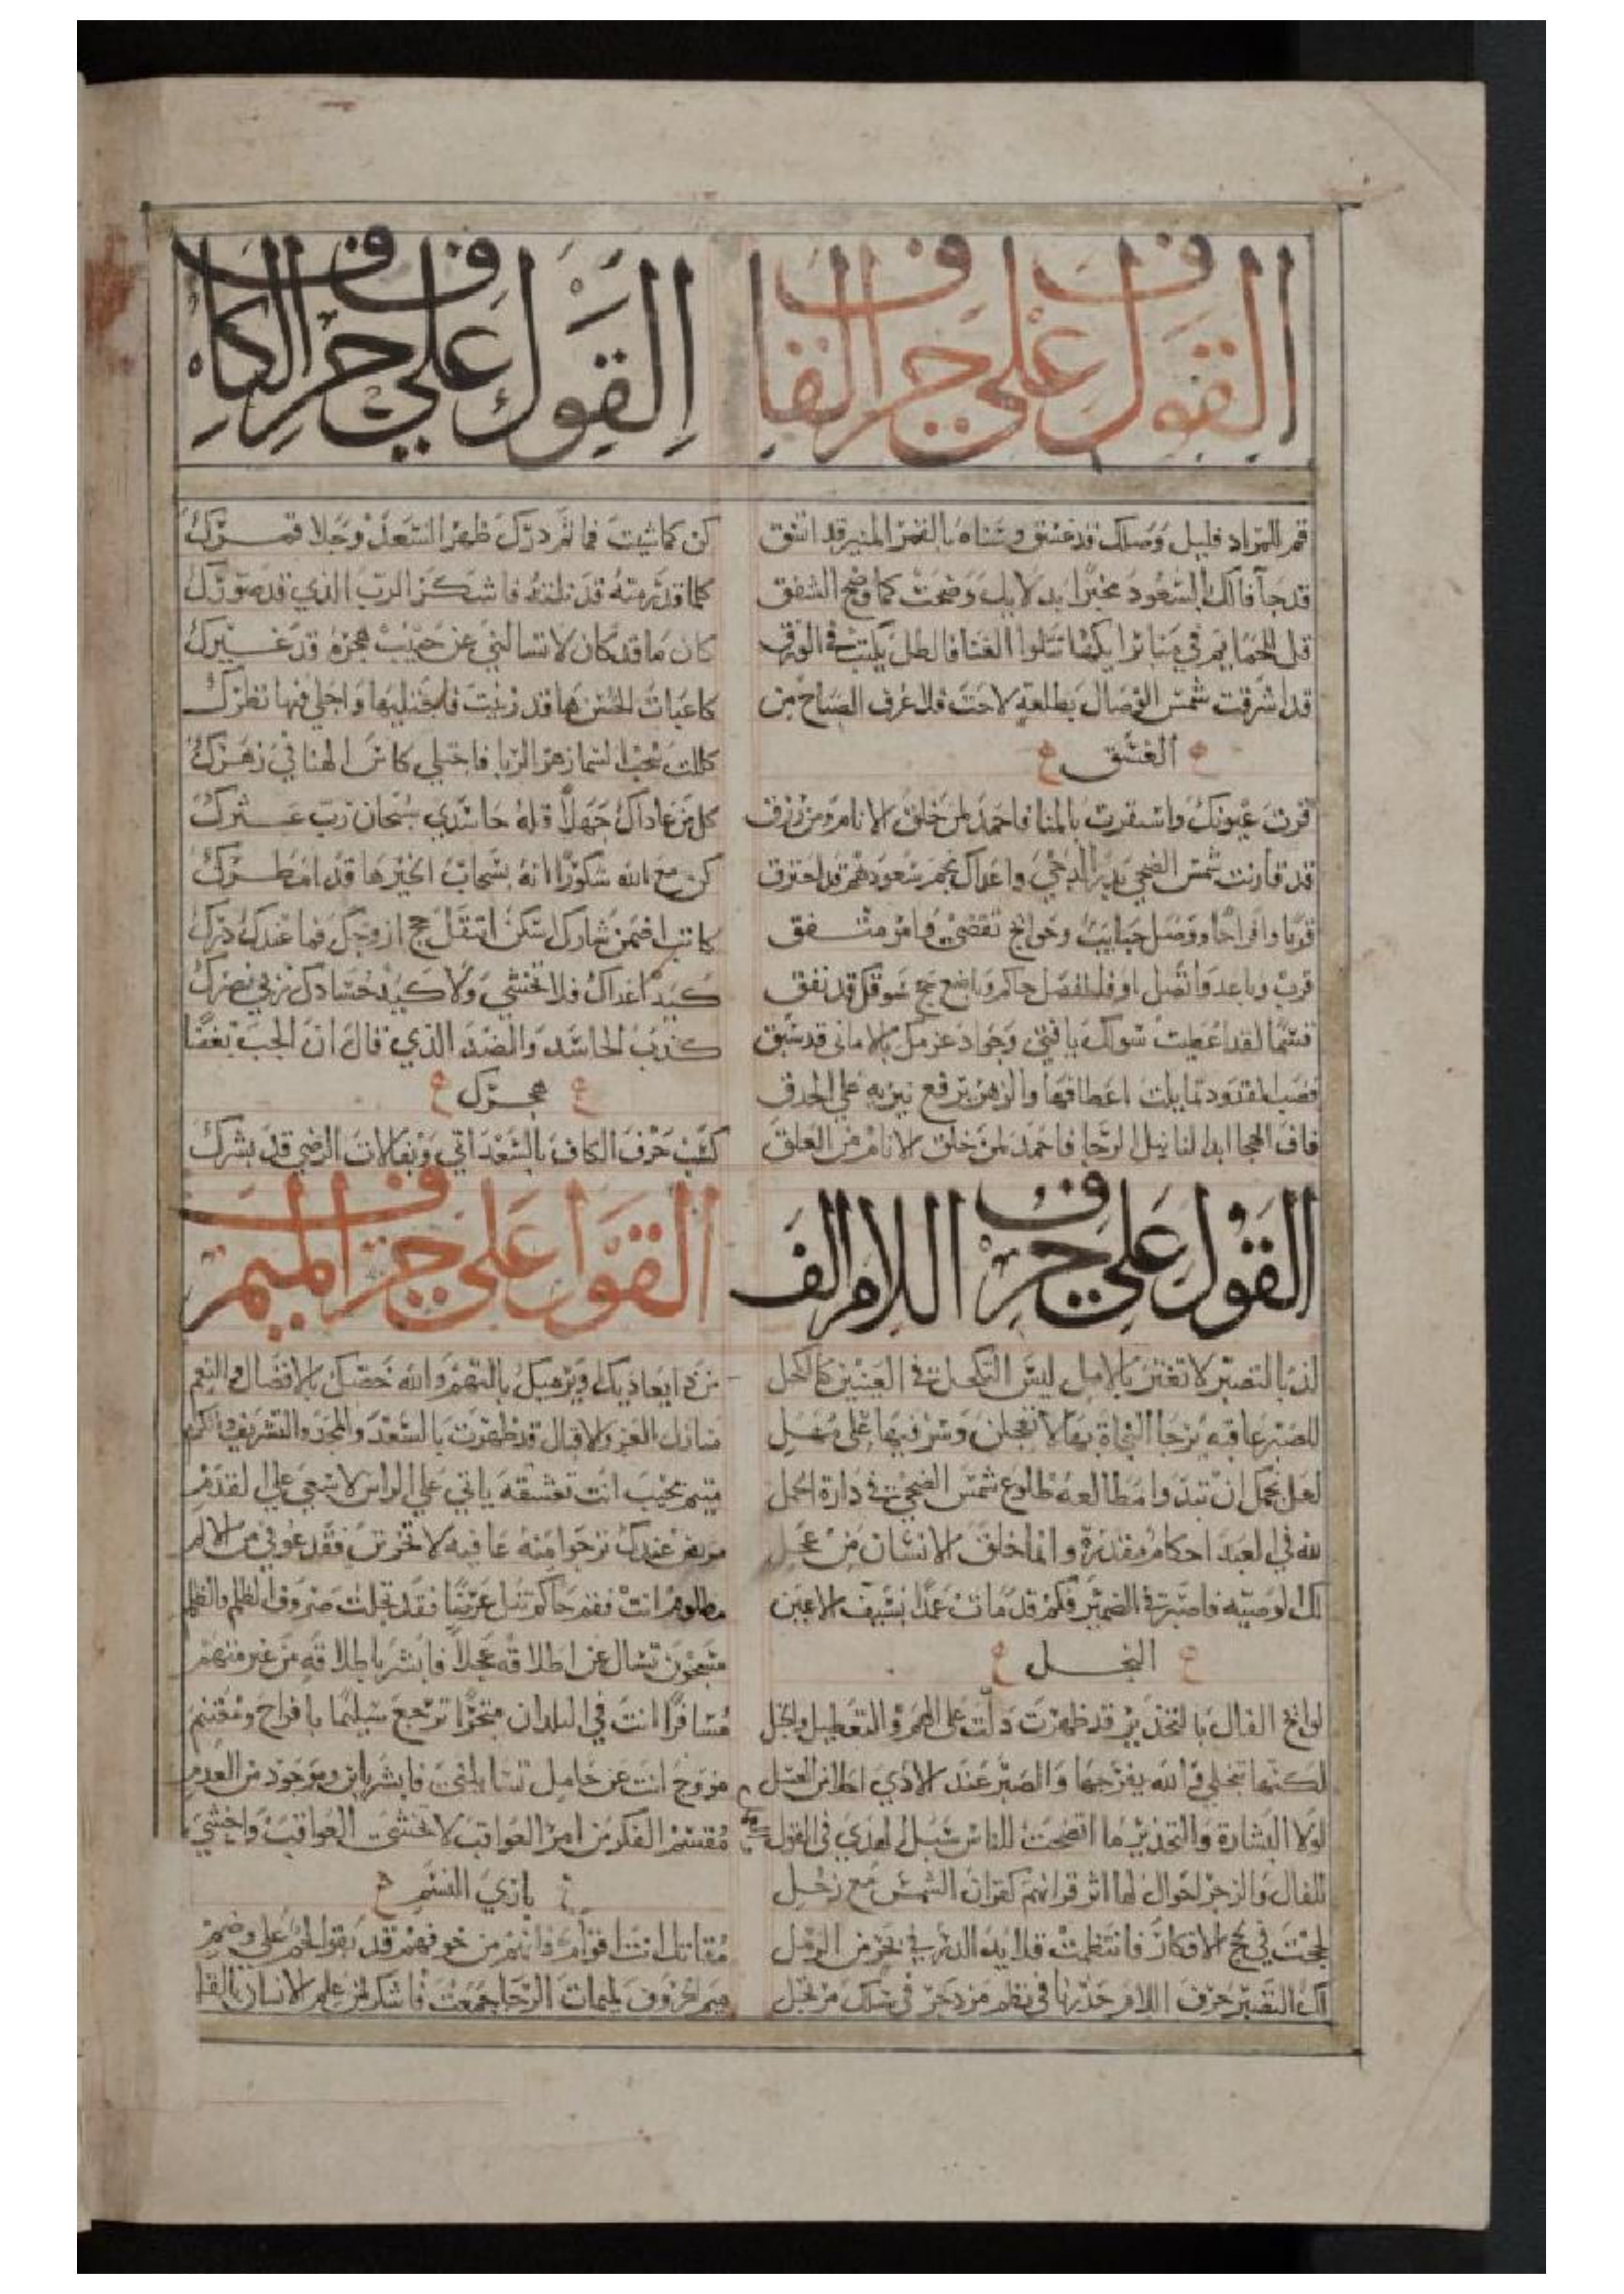 القول على حرف القاف
قم للمراد فليل وصلك قد غسق وسناه بالقمر المنير قد اتسق
قد جا فالك بالسعود مخبرا بدلايل وضحت كما وضح الشفق
قل للحمايم في منابر ايكها تتلوا الغنا فالطل يكتب في الورق
قد اشرقت شمس الوصال بطلعة لاحت فلا عرف الصباح من
الغسق
قرت عيونك واستقرت بالمنا فاحمد لمن خلق الانام ومن رزق
قد قارنت شمس الضحى بدر الدجى واعداك نجم سعودهم قد احترق
قربا وافراحا ووصل حبايب وحوايج تقضى وامر متسفق
قرب وباعد واتصل او فانفصل حاكم وبايع سوقك قد نفق
قسما لقد اعطيت سولك يا فتى وجواد عزمك بالاماني قد سبق
قضب القدود تمايلت اعطافها والزهر يرفع
قاف الهجا ابدا لنا نيل الرجا فاحمد لمن خلق الانام من العلق
القول على حرف الكاف
كن كما شيت فما ثم درك ظهر السعد وجلا قمرك
كلما قد رمته قد نلته فاشكر الرب الذي قد صورك
كان ما قد كان لا تسالني عن حبيب هجره قد غيرك
كاعبات الحسن ها قد زينت فاجتليها واجلي فيها نظرك
كللت سحب السما زهر الربا فاجتلي كاس الهنا في زهرك
كل من عاداك جهلا قل له حاسدي سبحان رب عثرك
كن مع الله شكورا انه بسحاب الخير ها قد امطرك
كاتب اضمن شارك اسكن انتقل حج ازوجك فما عندك درك
كيد اعداك فلا تخشى ولا كيد حسادك ربي نصرك
كذب الحاسد والضد الذي قال ان الحب بغضا
هجرك
كتب حرف الكاف بالسعد اتى وبفالات الرضى قد بشرك
القول على حرف اللام الف
لذ بالتصبر لا تغتر بالامل ليس التكحل في العينين كالكحل
للصبر عاقبة ترجا النجاة بها لا تعجلن وسر فيها على مهل
لعل نجمك ان تبدوا مطالعه طلوع شمس الضحى في دارة الحمل
لله في العبد احكام مقدرة وانما خلق الانسان من عجل
لك الوصية فاصبر في الضمير فكم قد مات عمدا بسيف الاعين
النجل
لوايح الفال بالتحذير قد ظهرت دلت على الهم والتعطيل
لكنها تنجلي فالله يفرجها والصبر عند الاذى احلا من العسل
لولا البشارة والتحذير ما اتضحت للناس سبل الهدى في القول
للفال والزجر احوال لها اثر قرانهم كقران الشمس مع زحل
لججت في لجج الافكار فانتظمت قلايد الدر في بحر من الرمل
لك التصبر حرف اللام حذرنا في نظم مزدجر في سلك مرتجل
القول على حرف الميم
من ذا يعاديك ويرميك بالتهم والله خصك بالافضال والنعم
منازل العز والاقبال قد ظهرت بالسعد والمجد والتشريف والكرم
متيم بحبيب انت تعشقه ياتي على الراس لا يسعى على القدم
مريض عندك ترجوا منه عافية لا تحزنن فقد عوفي من الالم
مظلوم انت فقم حاكم تنل غرضا فقد تجلت صروف الظلم والظلم
مسجون تسال عن اطلاقه عجلا فابشر باطلاقه من غير منهم
مسافرا انت في البلدان متجرا ترجع سليما بافراح ومغتنم
مزوج انت عن حامل تسال فابشر بابن وموجود من العدم
مقسم الفكر من امر العواقب لا تخشى العواقب واخشى
باري النسم
مقاتل انت اقوام فانهم من خوفهم قد بقوا لحم على وضم
ميم الحروف لميمات الرجا جمعت فاشكر لمن علم الانسان بالقلم